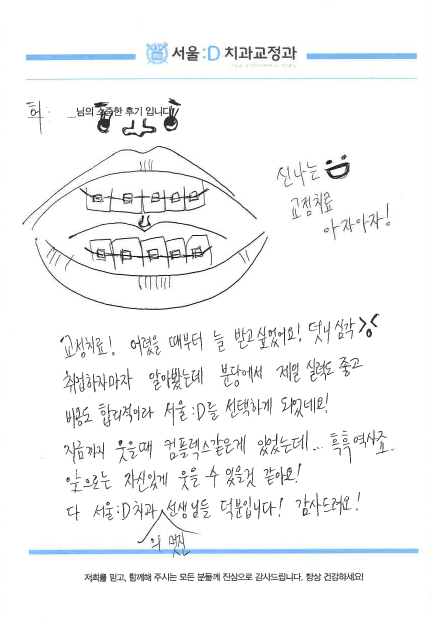 서울:D 치과교정과
허:   님의 소중한 후기 입니다
신나는
교정치료
아자아자!
교정치료! 어렸을 때부터 늘 받고싶었어요! 덧니 심각
취업하자마자 알아봤는데 분당에서 제일 실력도 좋고
비용도 합리적이라 서울:D를 선택하게 되었네요!
지금까지 웃을때 컴플렉스같은게 있었는데...흑흑
앞으로는 자신있게 웃을 수 있을것 같아요!
다 서울:D치과 선생님들 덕분입니다! 감사드려요!
의 멋진
저희를 믿고, 함께해 주시는 모든 분들께 진심으로 감사드립니다. 항상 건강하세요!